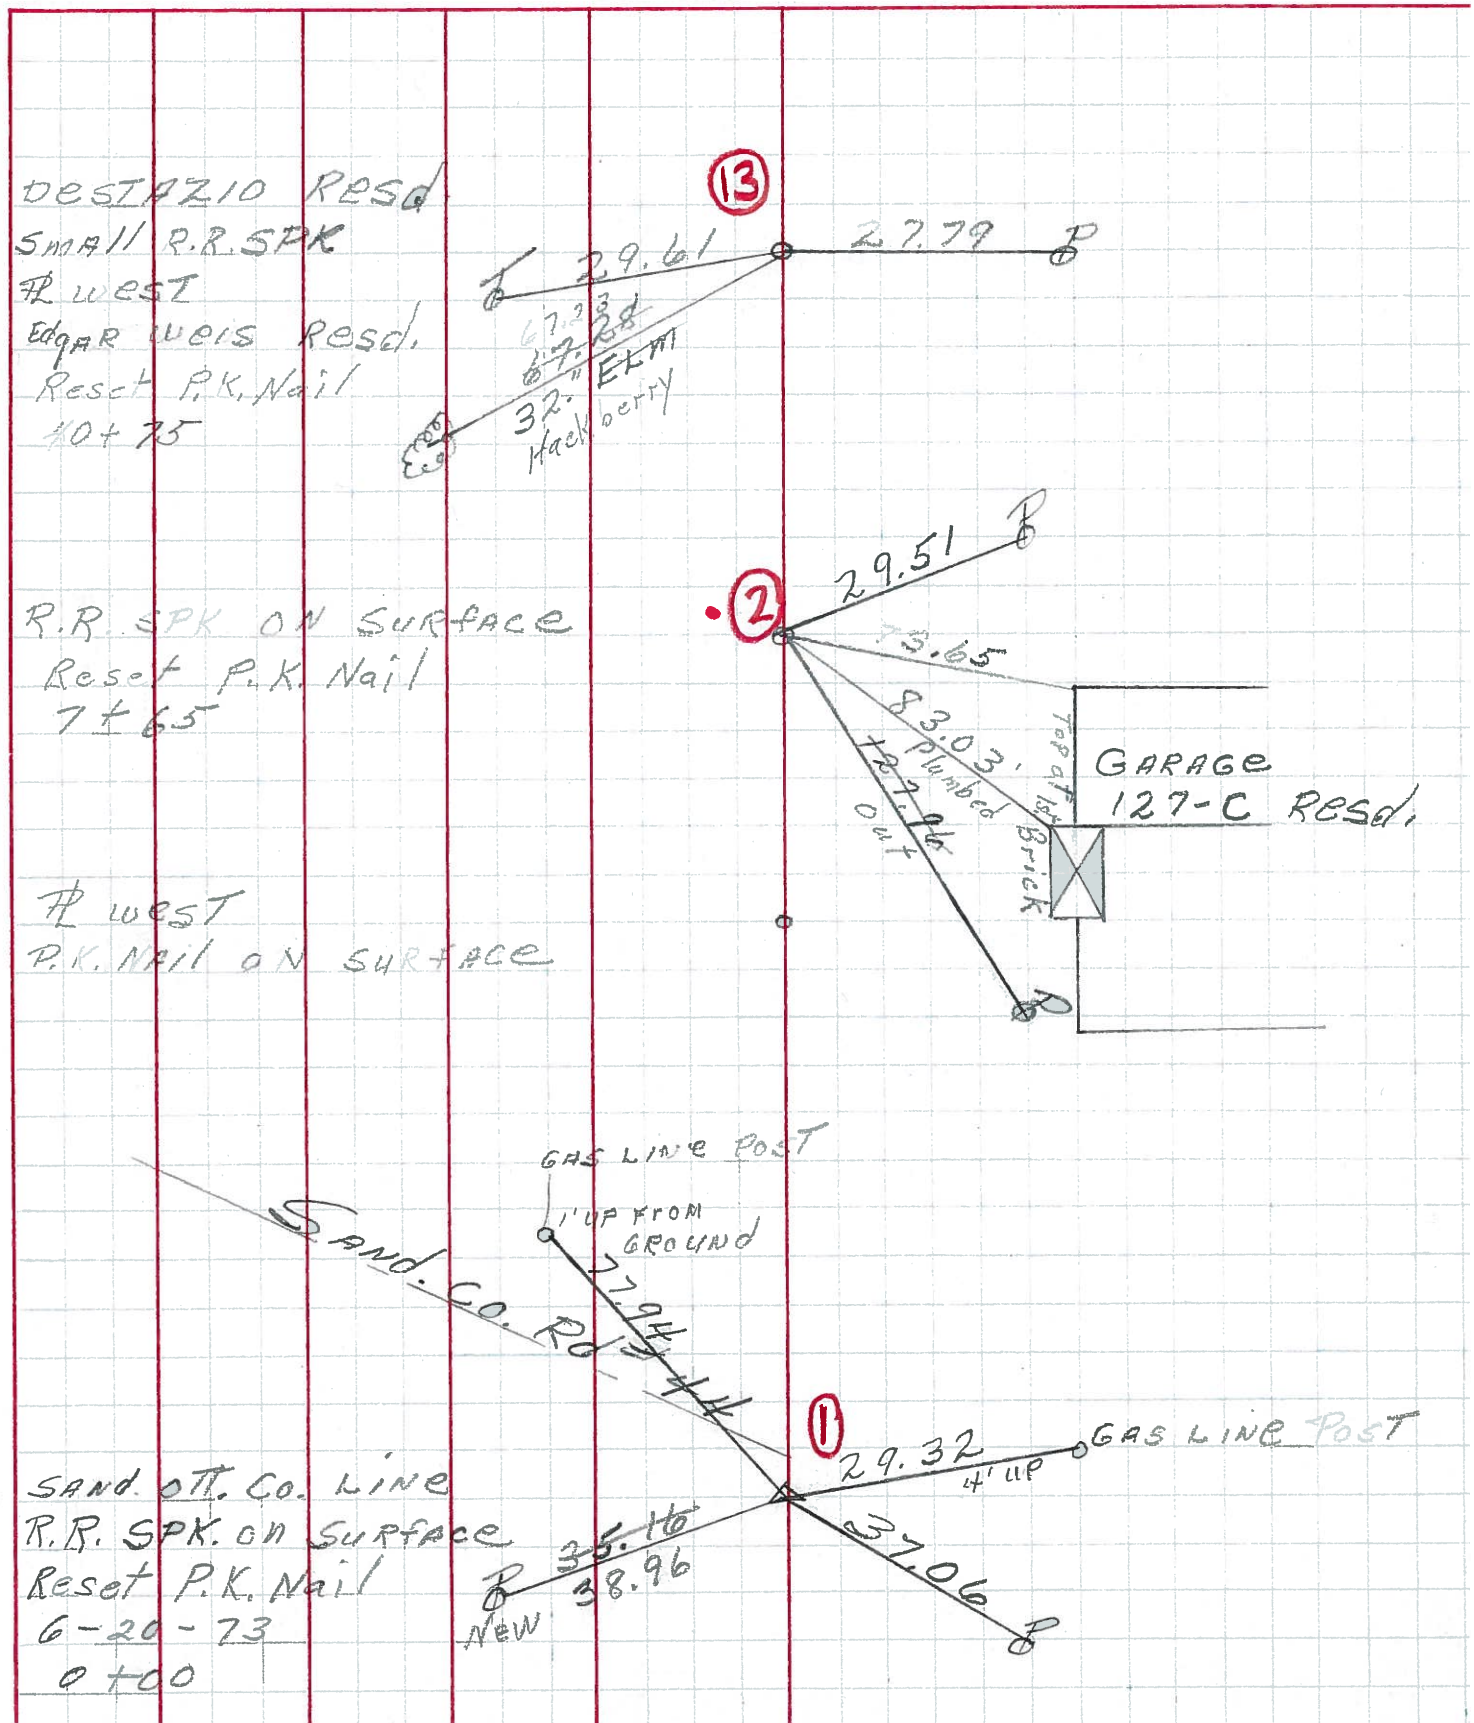 13
DESTAZIO Resd
SMAll R.R. SPK
PL west
Edgar Weis Resd.
Reset P.K. Nail
10+75
29.61
T
27.79
P
67.23
67.28
32." ELM
Hackberry
2
29.51
P
R.R. SPK ON SURfACe
Reset P.K. Nail
7+65
73.65
83.03'
Plumbed
127.96
Out
P
Top of 1st Brick
GARAGe
127-C Resd.
PL west
P.K. NAil oN SURfACe
GAS LINe POST
1' UP FROM
GROUNd
77.94
SANd. CO. Rd # 44
1
29.32
4' UP
GAS LINe POST
37.06
P
35.16
38.96
P
NEW
SANd. OTT. Co. LiNe
R.R. SPK. on SURfAce
Reset P.K. Nail
6-20-73
0+00